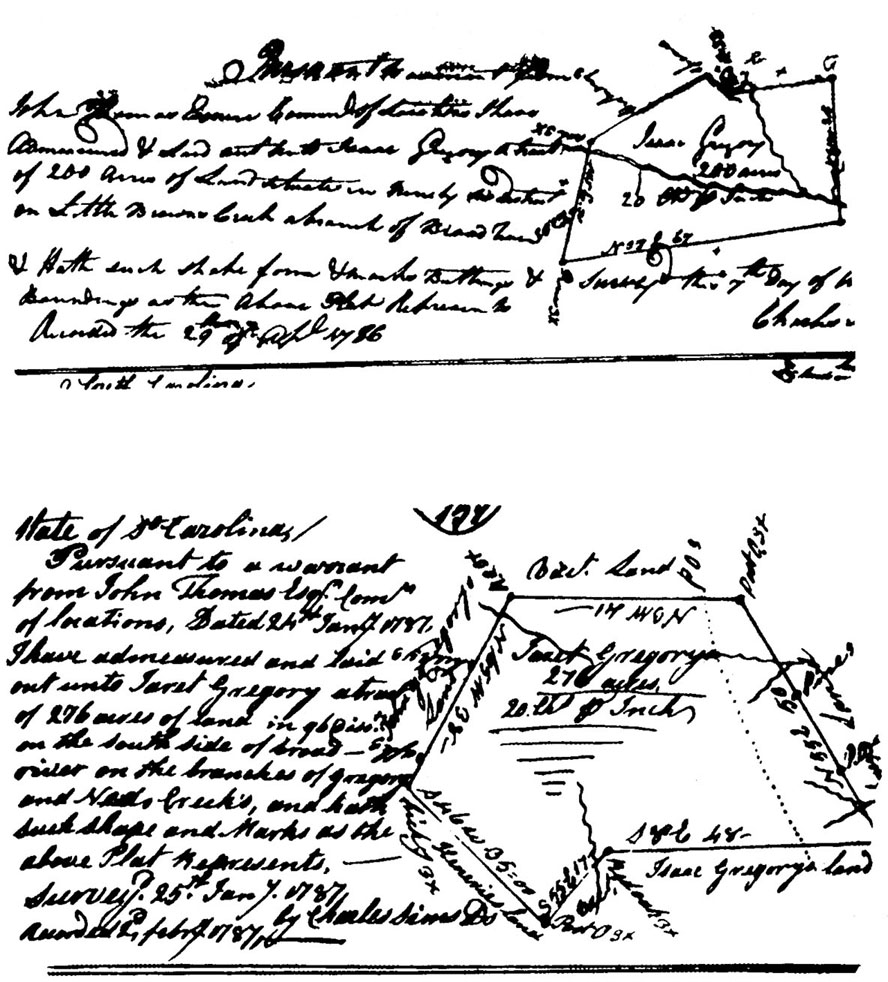 Pursuant to a warrant from
John Thomas Esquire Commd. of Locations I have
Admeasured & Laid out unto Isaac Gregory a tract
of 200 Acres of Land situate in Ninety Six District
on Little Browns Creek a branch of Broad River
& Hath such shake form & marks Buttings &
Boundings as the Above Plat Represents
Recorded the 29th of Apl 1786
Isaac Gregory
200 acres
20 Chs p Inch
N 72 E 67
Survey this 7th Day of
Charles
South Carolina
177
State of So Carolina,
Pursuant to a warrant
from John Thomas Esqr. Comr.
of locations, Dated 24th Jany. 1787,
I have admeasured and laid
out unto Jaret Gregory a tract
of 276 acres of land in 96 Dist.
on the south side of broad
river on the branches of gregorys
and Neds Creek's, and hath
such shape and Marks as the
above Plat Represents,
Survey'd. 25th Jany. 1787
by Charles Sims DS
Recorded 2d, febry. 1787,
Bact. Land
P O 3
Post O 3x
N 3 W 41
Jaret Gregorys
276 acres
20 Chs p Inch
S 46 W 35-00
S 55 E 17
Post O 3x
S 8° E 48-
Isaac Gregorys land